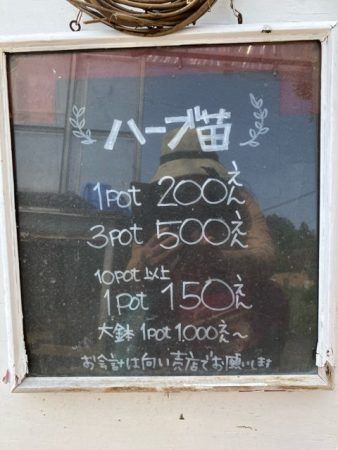 ハーブ苗
1pot 200えん
3pot 500えん
10pot以上
1pot 150えん
大鉢 1pot 1.000えん〜
お会計は向い売店でお願いします